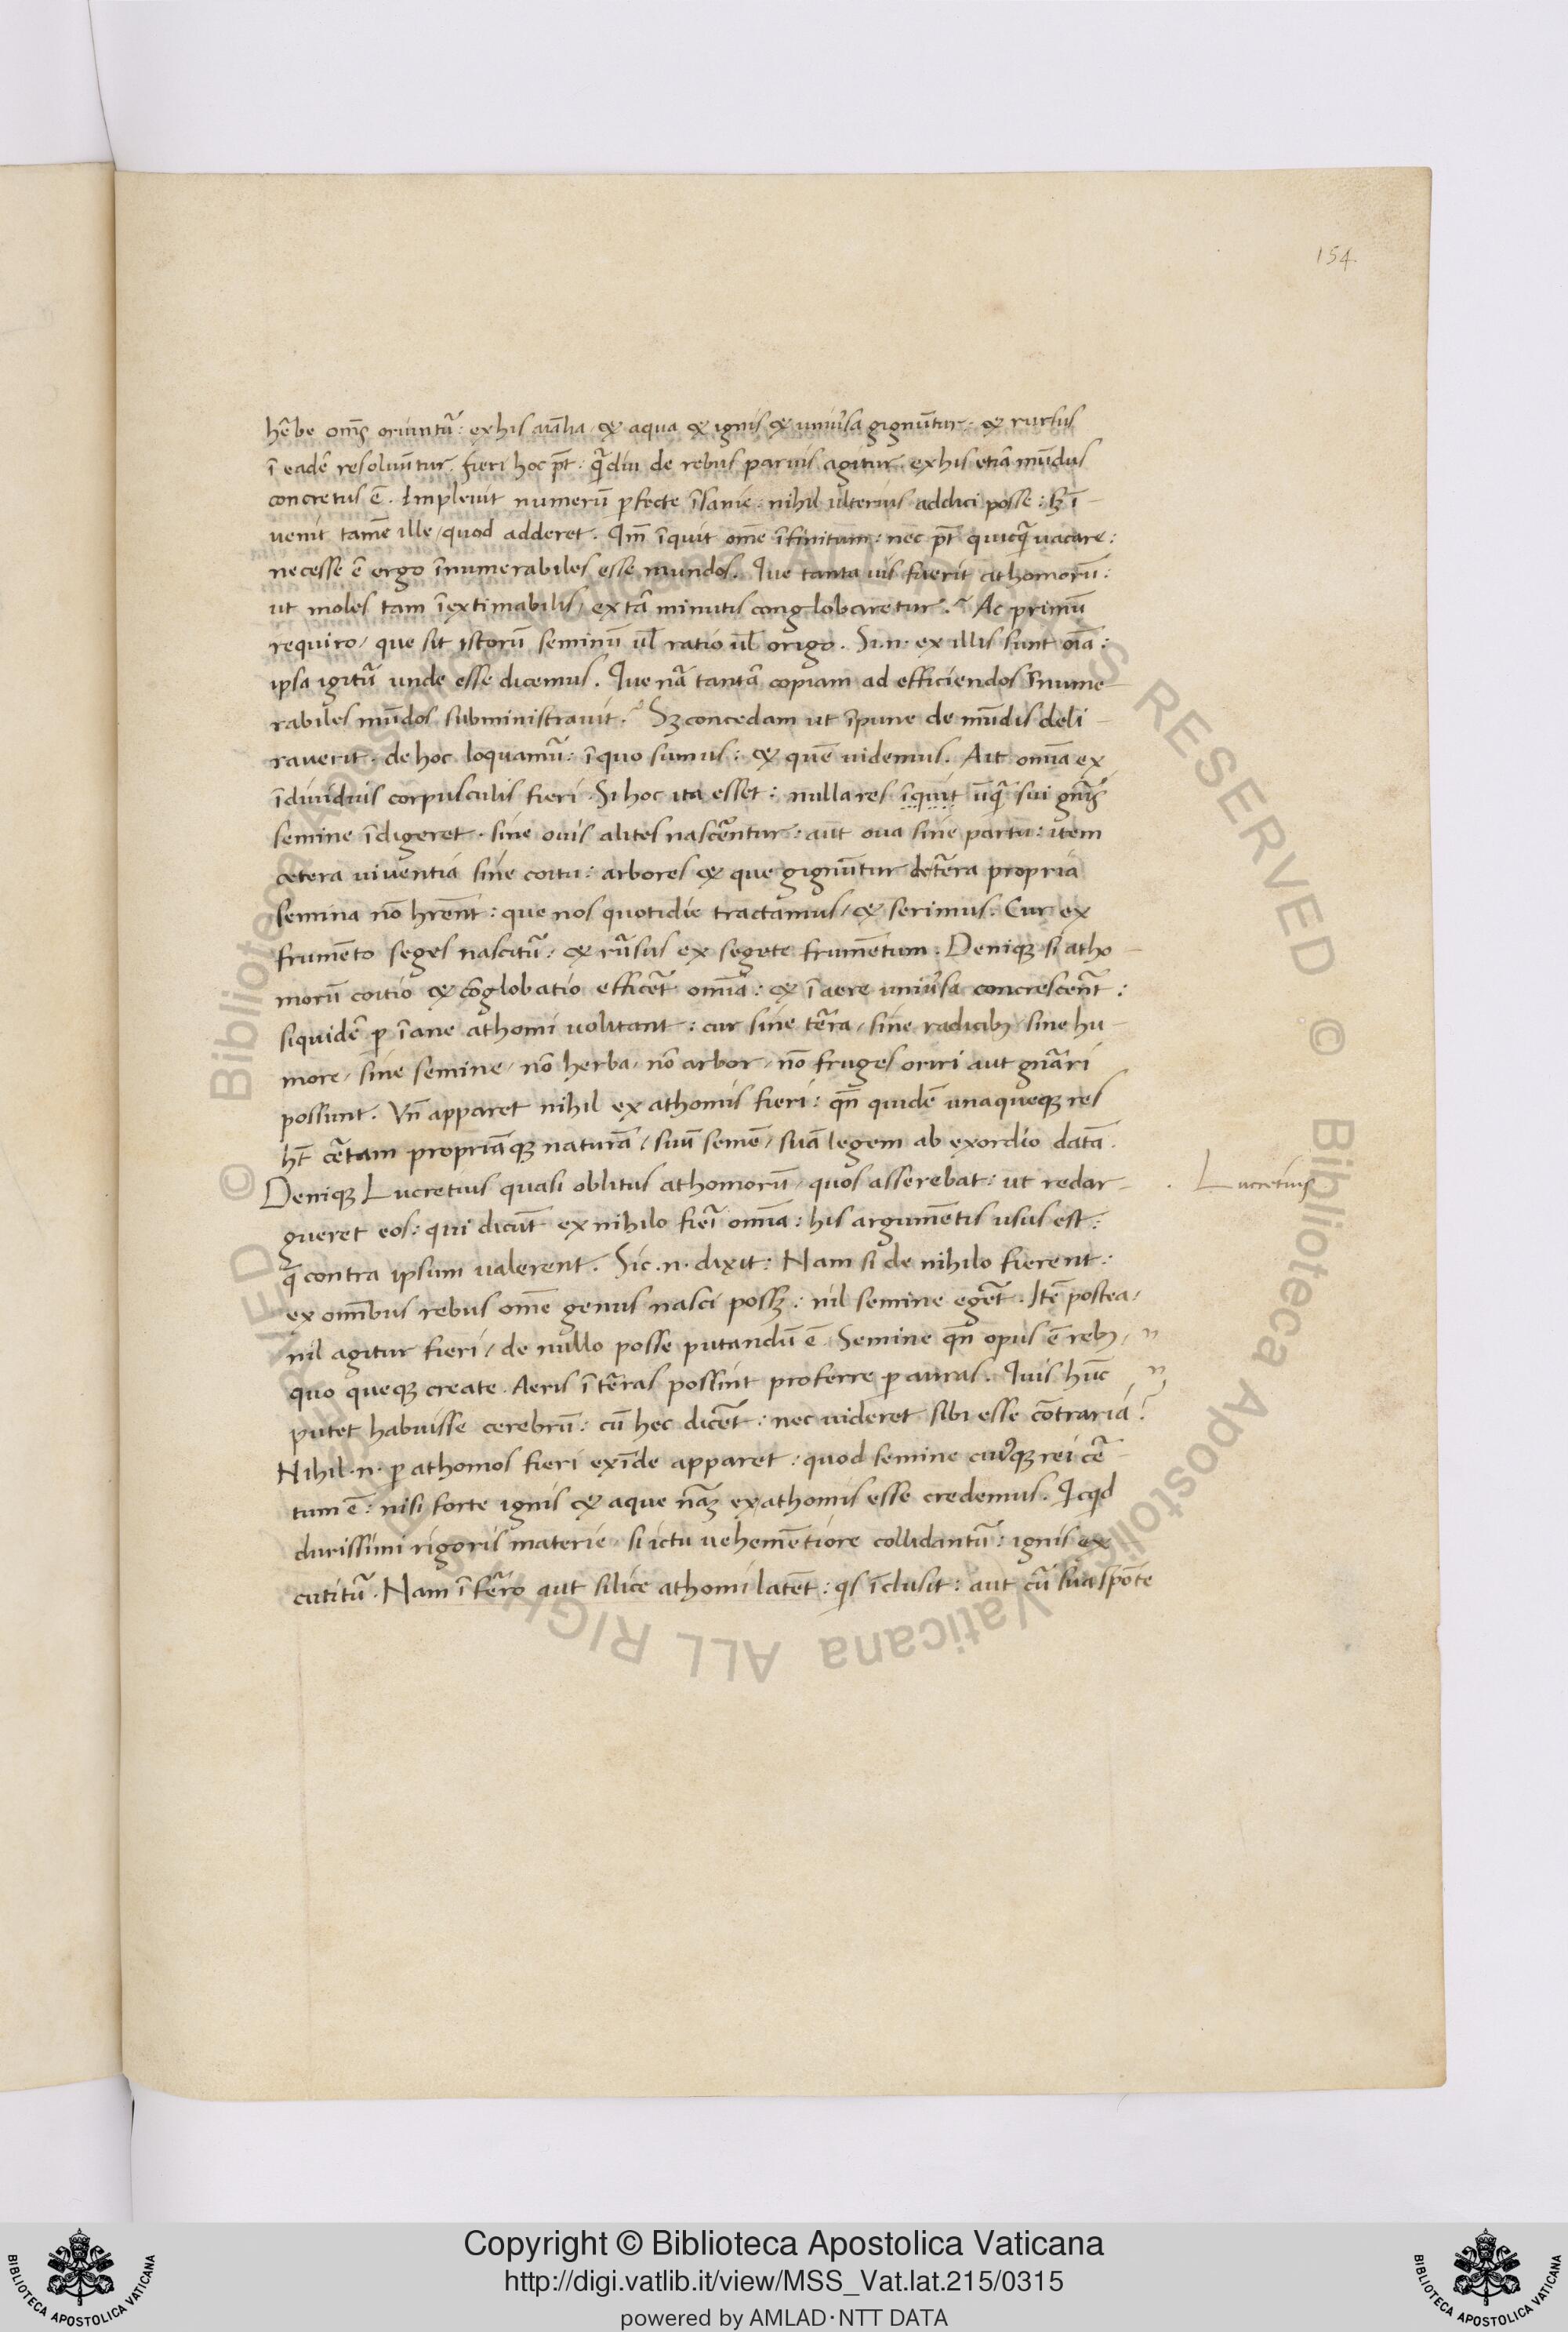 154.
hẽbe om̃s oriuntũ: ex his aĩalia, & aqua & ignis & uniũsa gignũtur: & rursus
ĩ eadẽ resoluũtur. fieri hoc p̃t: q̃diu de rebus paruis agitur. ex his etiã mũdus
concretus ẽ. Impleuit numerũ p̱fecte ĩsanie: nihil ulterius addici posse: sꝫ ĩ-
uenit tamẽ ille, quod adderet. Qm̃ ĩquit om̃e ĩfinitum: nec p̃t quicq̃ uacare:
necesse ẽ ergo ĩnumerabiles esse mundos. Que tanta uis fuerit athomorũ:
ut moles tam ĩextimabilis, ex tã minutis conglobaretur? Ac primũ
requiro, que sit istorũ seminũ ul̃ ratio ul̃ origo. Si .n. ex illis sunt oĩa:
ipsa igitũ unde esse dicemus. Que nã tantã copiam ad efficiendos ĩnume-
rabiles mũdos subministrauit? Sꝫ concedam ut ĩpune de mũdis deli-
rauerit. de hoc loquamũ: ĩ quo sumus: & quẽ uidemus. Ait omĩa ex
ĩdiuiduis corpusculis fieri. Si hoc ita esset: nulla res ĩquit ũq̃ sui gñis
semine ĩdigeret. sine ouis alites nascẽrentur: aut oua sine partu: item
cetera uiuentia sine coitu: arbores & que gignũtur de tẽra propria
semina nõ hrẽnt: que nos quotidie tractamus, & serimus. Cur ex
frumẽto seges nascitũ, & rũsus ex segete frumẽtum. Deniqꝫ si atho-
morũ coitio & cõglobatio efficẽt omĩa: & ĩ aere uniũsa concrescẽnt:
siquidẽ p̱ ĩane athomi uolitant: cur sine tẽra, sine radicibꝫ, sine hu-
more, sine semine, nõ herba, nõ arbor, nõ fruges oriri aut gñari
possunt. Vñ apparet nihil ex athomis fieri: qñ quidẽ unaqueqꝫ res
ht̃ cẽtam propriãqꝫ naturã, suũ semẽ, suã legem ab exordio datã.
Deniqꝫ Lucretius quasi oblitus athomorũ, quos asserebat: ut redar-
gueret eos: qui dicũt ex nihilo fieri omĩa: his argumẽtis usus est:
q̃ contra ipsum ualerent. Sic .n. dixit: Nam si de nihilo fierent:
ex omĩbus rebus om̃e genus nasci possꝫ: nil semine egẽt. Itẽ postea,
nil agitur fieri, de nullo posse putandũ ẽ. Semine qñ opus ẽ rebꝫ,
quo queqꝫ create. Aeris ĩ tẽras possint proferre p̱ auras. Quis hũc
putet habuisse cerebrũ: cũ hec dicẽt: nec uideret sibi esse cõtraria?
Nihil .n. p̱ athomos fieri exĩde apparet: quod semine cuiũqꝫ rei cẽ-
tum ẽ: nisi forte ignis & aque nãꝫ ex athomis esse credemus. Qcqd
durissimi rigoris materie, si ictu uehemẽtiore collidantũ: ignis ex
cutitũ. Nam ĩ fẽro aut silice athomi latẽt: qs ĩclusit: aut cũ sua spõte
Lucretius
Copyright © Biblioteca Apostolica Vaticana
http://digi.vatlib.it/view/MSS_Vat.lat.215/0315
powered by AMLAD·NTT DATA
BIBLIOTECA APOSTOLICA VATICANA
BIBLIOTECA APOSTOLICA VATICANA
© Biblioteca Apostolica Vaticana ALL RIGHTS RESERVED